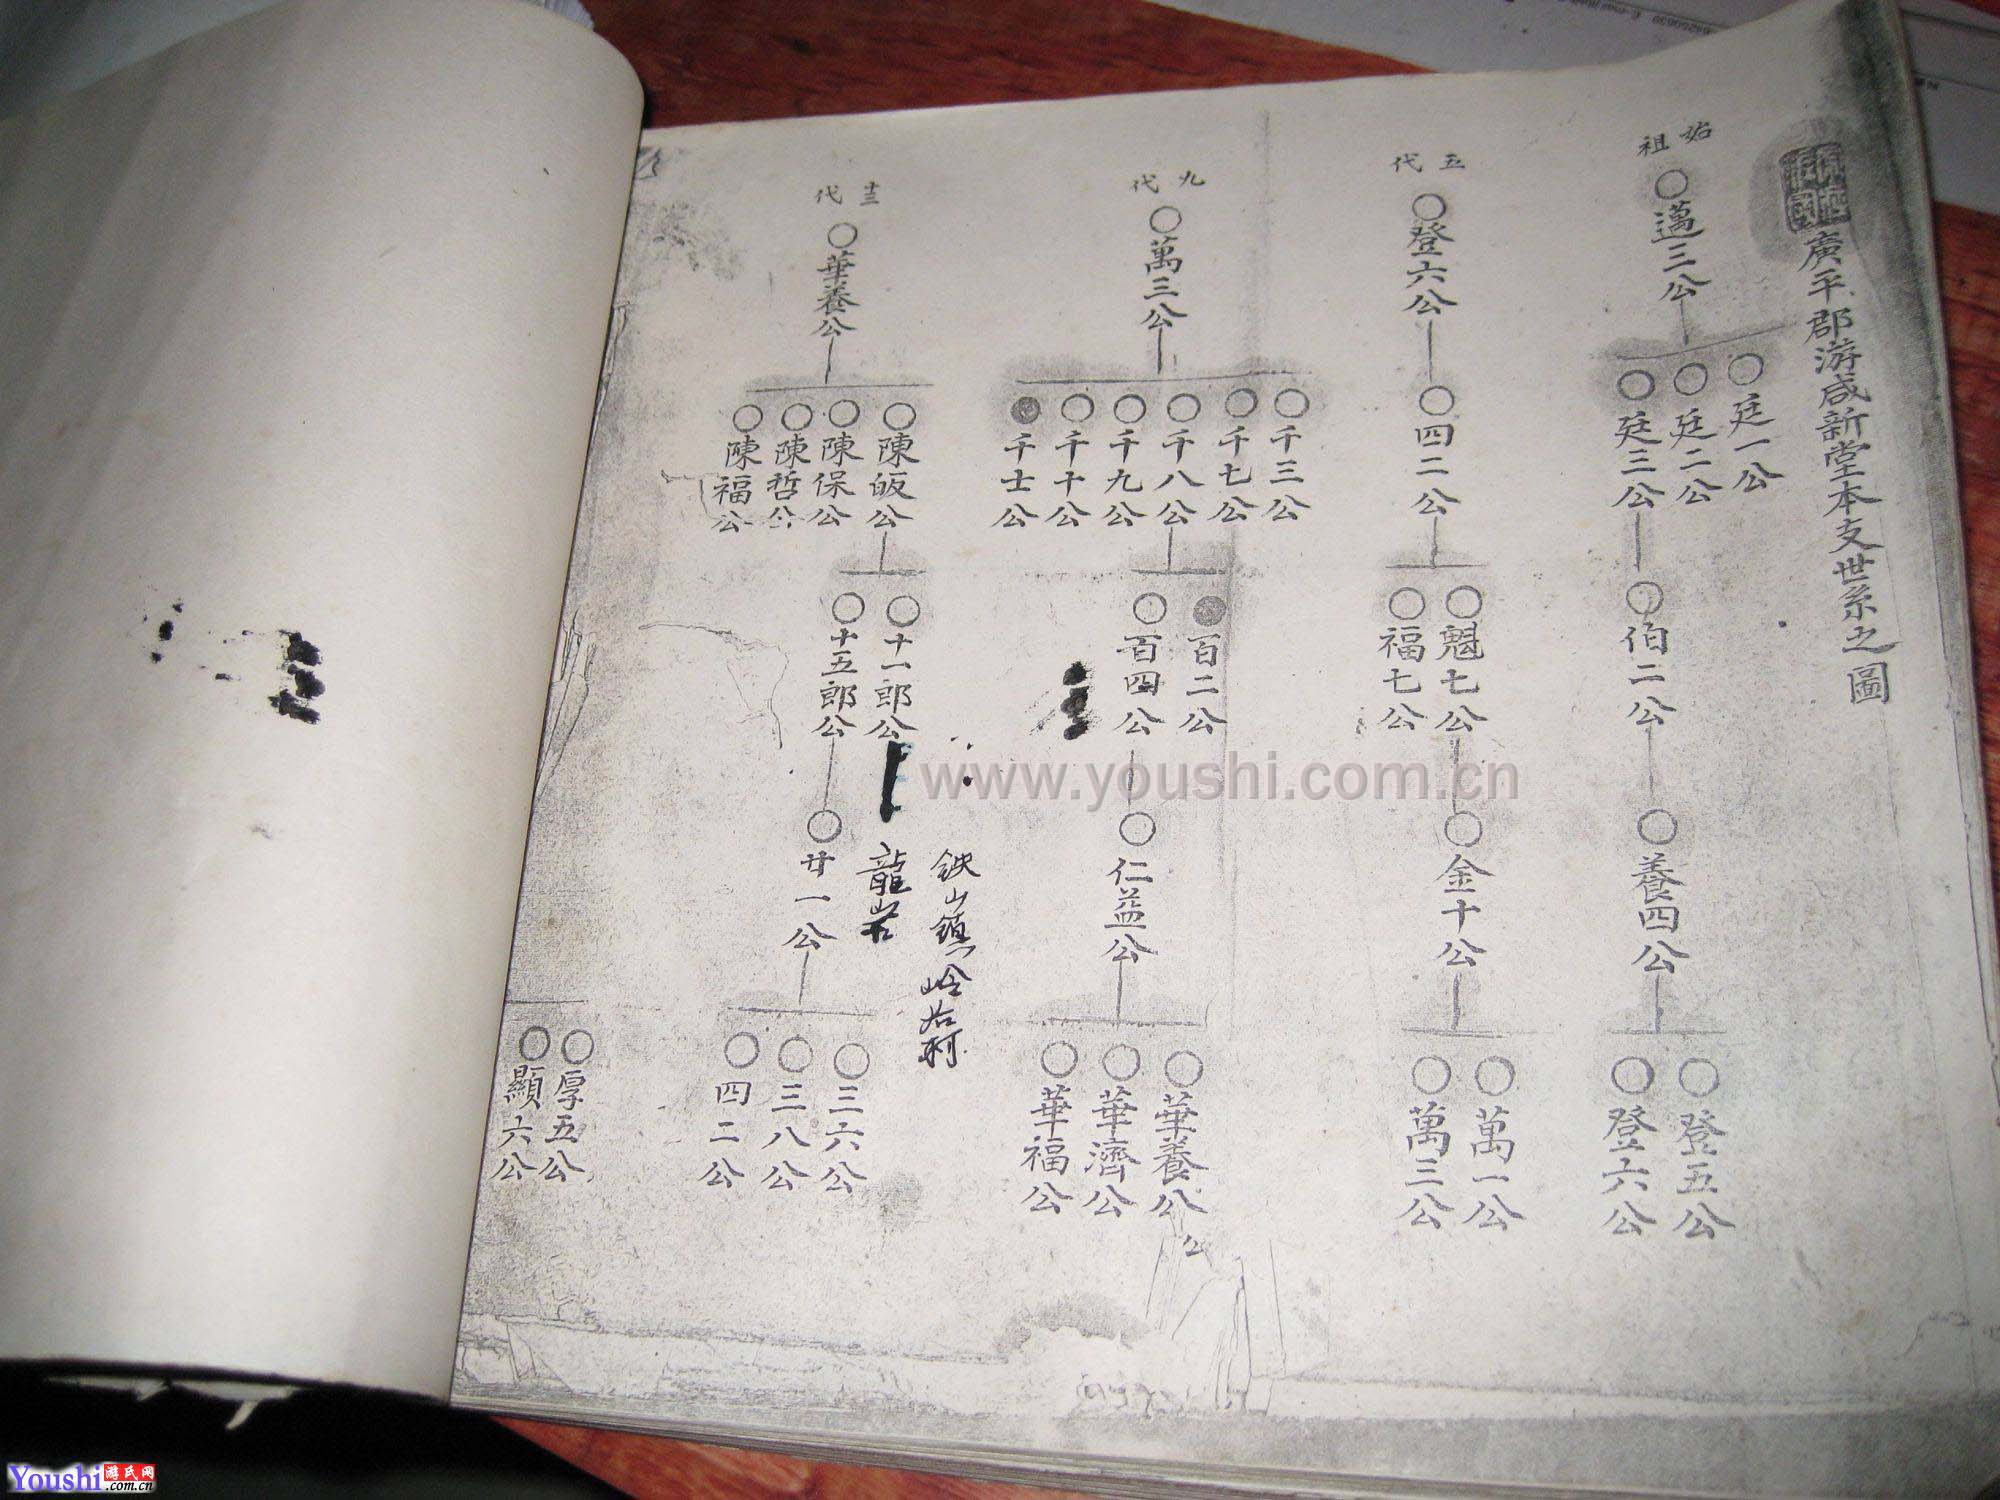 廣平郡游咸新堂本支世系之圖
始祖
邁三公
廷一公
廷二公
廷三公
伯二公
養四公
登五公
登六公
五代
登六公
四二公
魁七公
福七公
金十公
萬一公
萬三公
九代
萬三公
千三公
千七公
千八公
千九公
千十公
千士公
百二公
百四公
仁益公
華養公
華濟公
華福公
十三代
華養公
陳皈公
陳保公
陳哲公
陳福公
十一郎公
十五郎公
廿一公
鉄山鎮
龍岩
三六公
三八公
四二公
厚五公
顯六公
www.youshi.com.cn
Youshi 游氏网
.com.cn